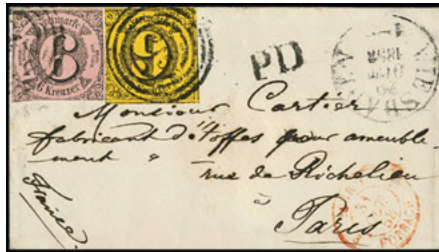 6 Kreuzer
9
PD
Monsieur Cartier
fabricant d'étoffes pour ameuble-
ment
rue de Richelieu
à
Paris
France